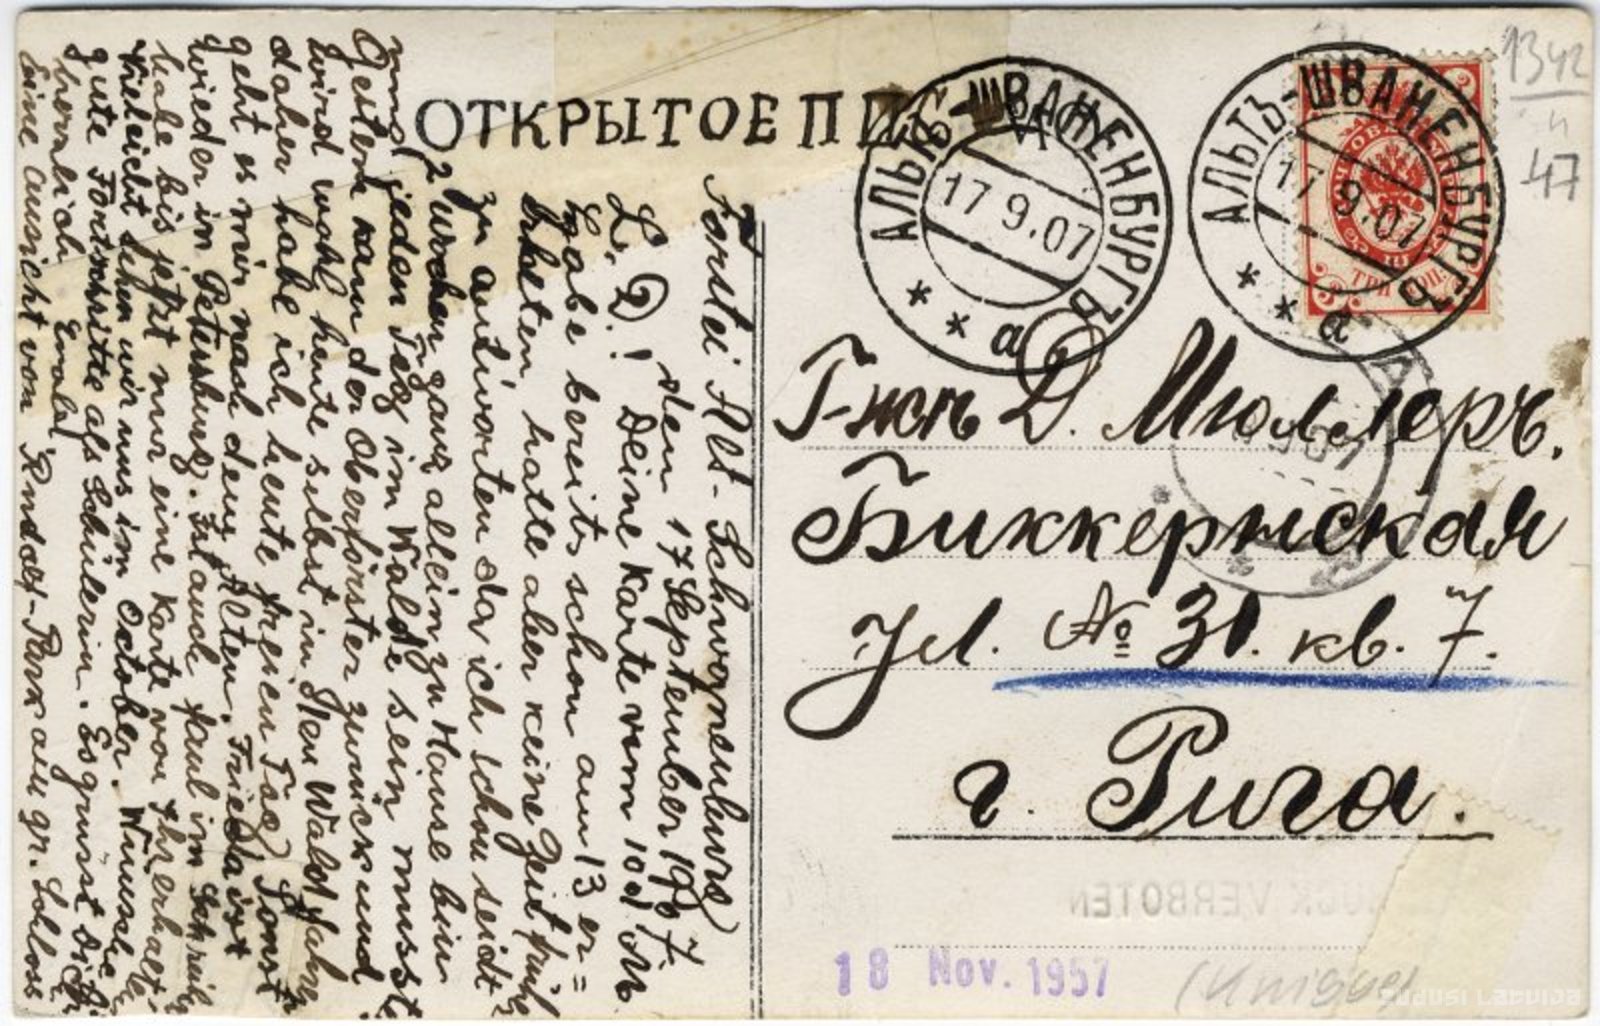 ОТКРЫТОЕ ПИС
АЛЬТЪ-ШВАНЕНБУРГЪ
17 9.07
* * а
АЛЬТЪ-ШВАНЕНБУРГЪ
17 9.07
* * а
ТРИ КОП.
1342
47
Г-жѣ Д. Мюллеръ.
Биккернская
Ул. № 31. кв. 7.
г. Рига.
DRUCK VERBOTEN
18 Nov. 1957
zudusi Latvija
Forstei Alt-Schwanenburg
den 17 September 1907.
L. D! Deine Karte vom 10 d. M.
habe bereits schon am 13 er=
halten, hatte aber keine Zeit früher
zu antworten da ich schon seit
2 Wochen ganz allein zu Hause bin
und jeden Tag im Walde sein musste
Gestern kam der Oberförster zurück und
wird wohl heute selbst in den Wald fahren
daher habe ich heute freien Tag. Sonst
geht es mir nach dem Alten. Frieda ist
wieder in Petersburg. Ist auch faul im Schreiben
habe bis jetzt nur eine Karte von Ihr erhalten
Vieleicht sehen wir uns im October. Wünsche
gute Fortschritte als Schülerin. Es grüsst Dich
herzlich Ewald
Eine Aussicht von Rudolf-Park am gr. Schloss